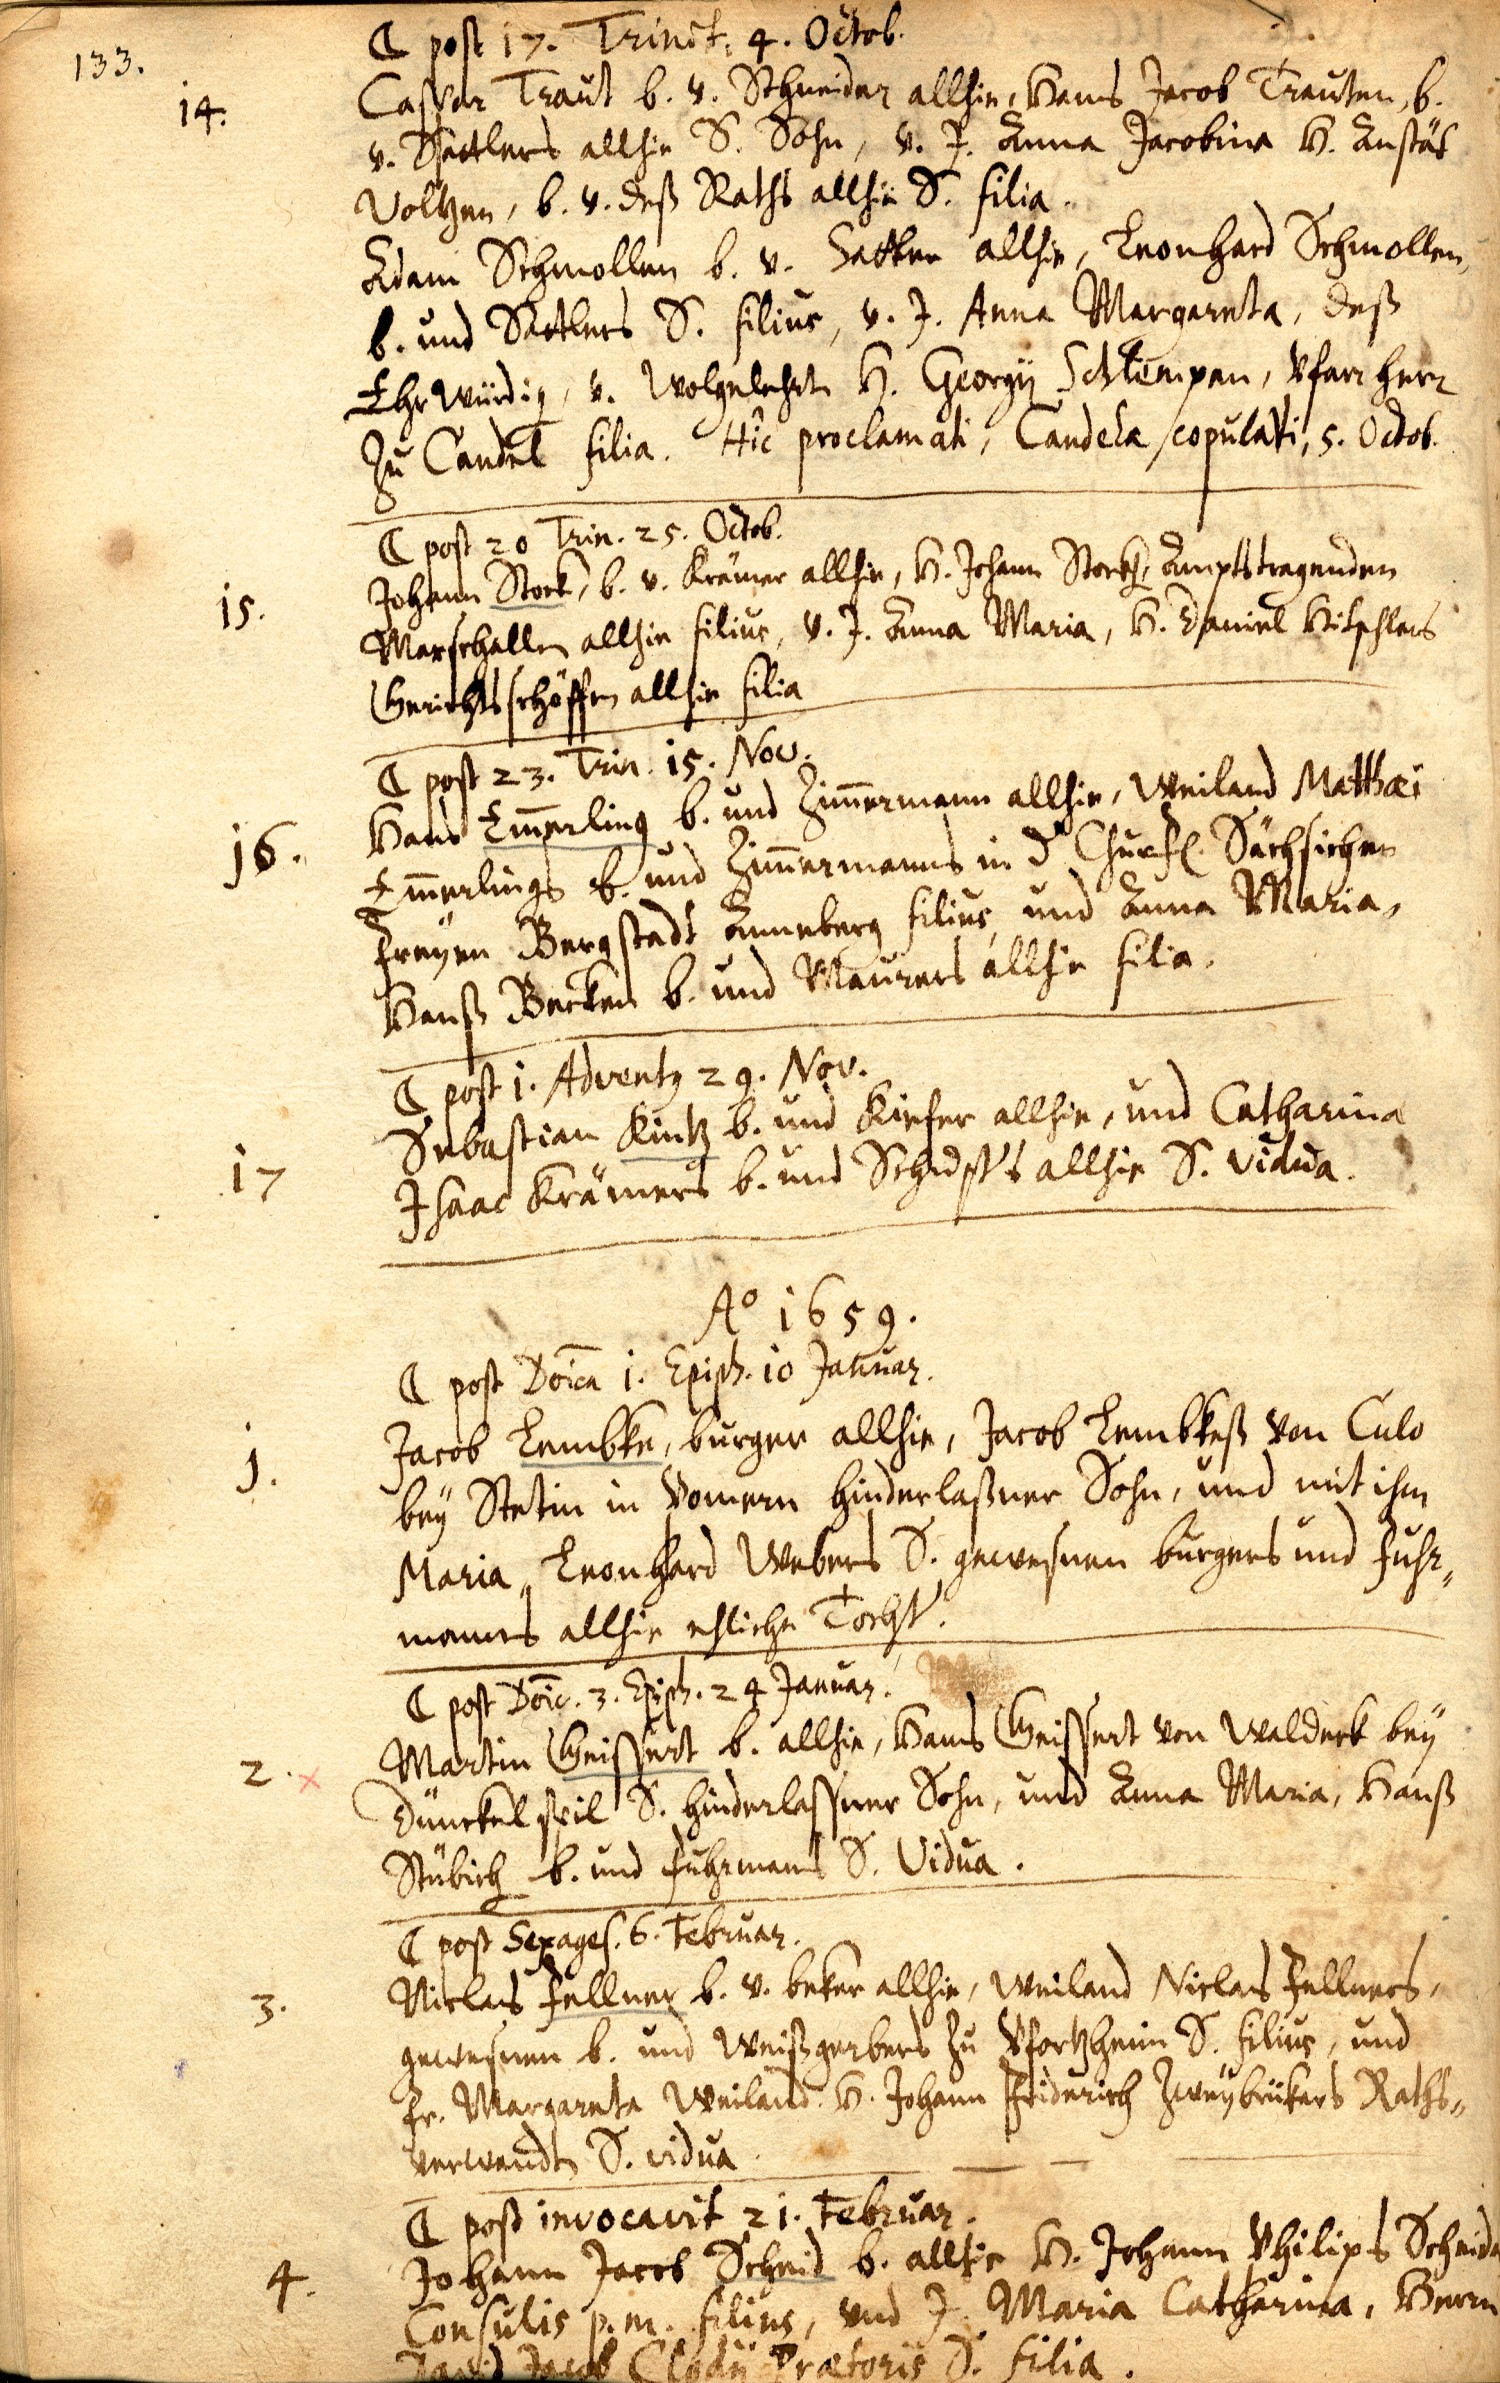 133.
☾ post 17. Trinit. 4. Octob.
14.
Caspar Traut b. v. Schneider allhie, Hans Jacob Trauten, b.
v. Sattlers allhie S. Sohn, v. J. Anna Jacobina H. Anstät
Voltzen, b. v. deß Raths allhie S. filia.
Adam Schmollen b. v. allhie, Leonhard Schmollen,
b. und Sattlers S. filius, v. J. Anna Margareta, deß
Ehrwürdig, v. Wolgelehrt H. Georgij Schlempen, Pfarrherr
zu Candel filia. Hic proclamati, Candela copulati, 5. Octob.
☾ post 20 Trin. 25. Octob.
15.
Johann Stork, b. v. Krämer allhie, H. Johann Storks, Amptstragenden
Marschallen allhie filius, v. J. Anna Maria, H. Daniel Hitschlers
Gerichtsschöffen allhie filia
☾ post 23. Trin. 15. Nov.
16.
Hans Em̅erling b. und Zim̅ermann allhie, Weiland Matthæi
Em̅erlings b. und Zim̅ermanns in d Churfl. Sächsischen
freyen Bergstadt Anneberg filius, und Anna Maria,
Hanß Becken b. und Maurers allhie filia.
☾ post 1. Advents 29. Nov.
17
Sebastian Kintz b. und Kiefer allhie, und Catharina
Isaac Krämers b. und allhie S. vidua.
Aº 1659.
☾ post Dōica 1. Epiph. 10 Januar.
1.
Jacob Lembke, burger allhie, Jacob Lembkeß von Culo
bey Stetin in Pomern hinderlaßner Sohn, und mit ihm
Maria, Leonhard Webers S. gewesnen burgers und fuhr„
manns allhie ehliche Tocht.
☾ post Dōic. 3. Epiph. 24 Januar.
2. x
Martin Geissert b. allhie, Hans Geissert von Waldeck bey
Dünckelspil S. hinderlassner Sohn, und Anna Maria, Hanß
Stübich b. und fuhrmans S. Vidua.
☾ post Sexages. 6. Februar.
3.
Niclas Fellner b. v. beker allhie, Weiland Niclas Fellners,
gewesnen b. und Weißgerbers zu Pfortzheim S. filius, und
fr. Margareta Weiland H. Johann Friderich Zweybrükers Raths„
verwandtn S. vidua.
☾ post invocavit 21. Februar.
4.
Johann Jacob Scheid b. allhie H. Johann Philips Scheid
Consulis p.m. filius, und J. Maria Catharina, Herrn
David Jacob Clodij Prætoris S. filia.